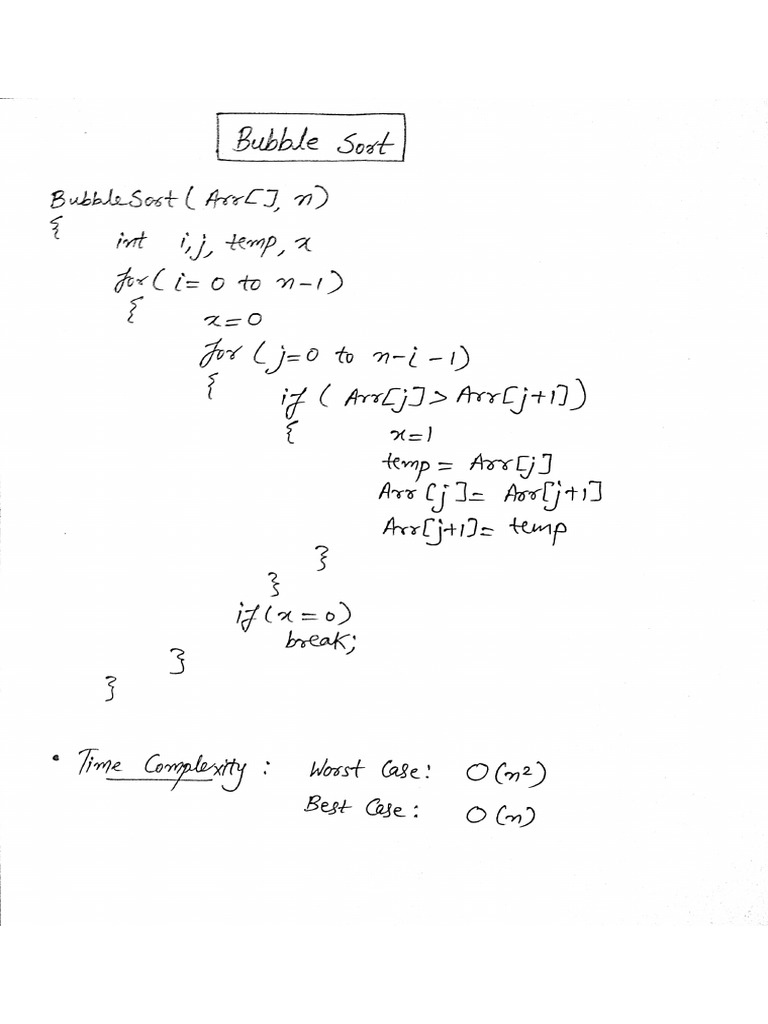 Bubble Sort
BubbleSort ( Arr[], n)
{
int i, j, temp, x
for ( i= 0 to n-1)
{ x=0
for ( j=0 to n-i-1)
{ if ( Arr[j] > Arr[j+1])
{ x=1
temp = Arr[j]
Arr [j] = Arr[j+1]
Arr[j+1] = temp
}
}
if (x = 0)
break;
}
}
• Time Complexity : Worst Case: O(n²)
Best Case : O(n)